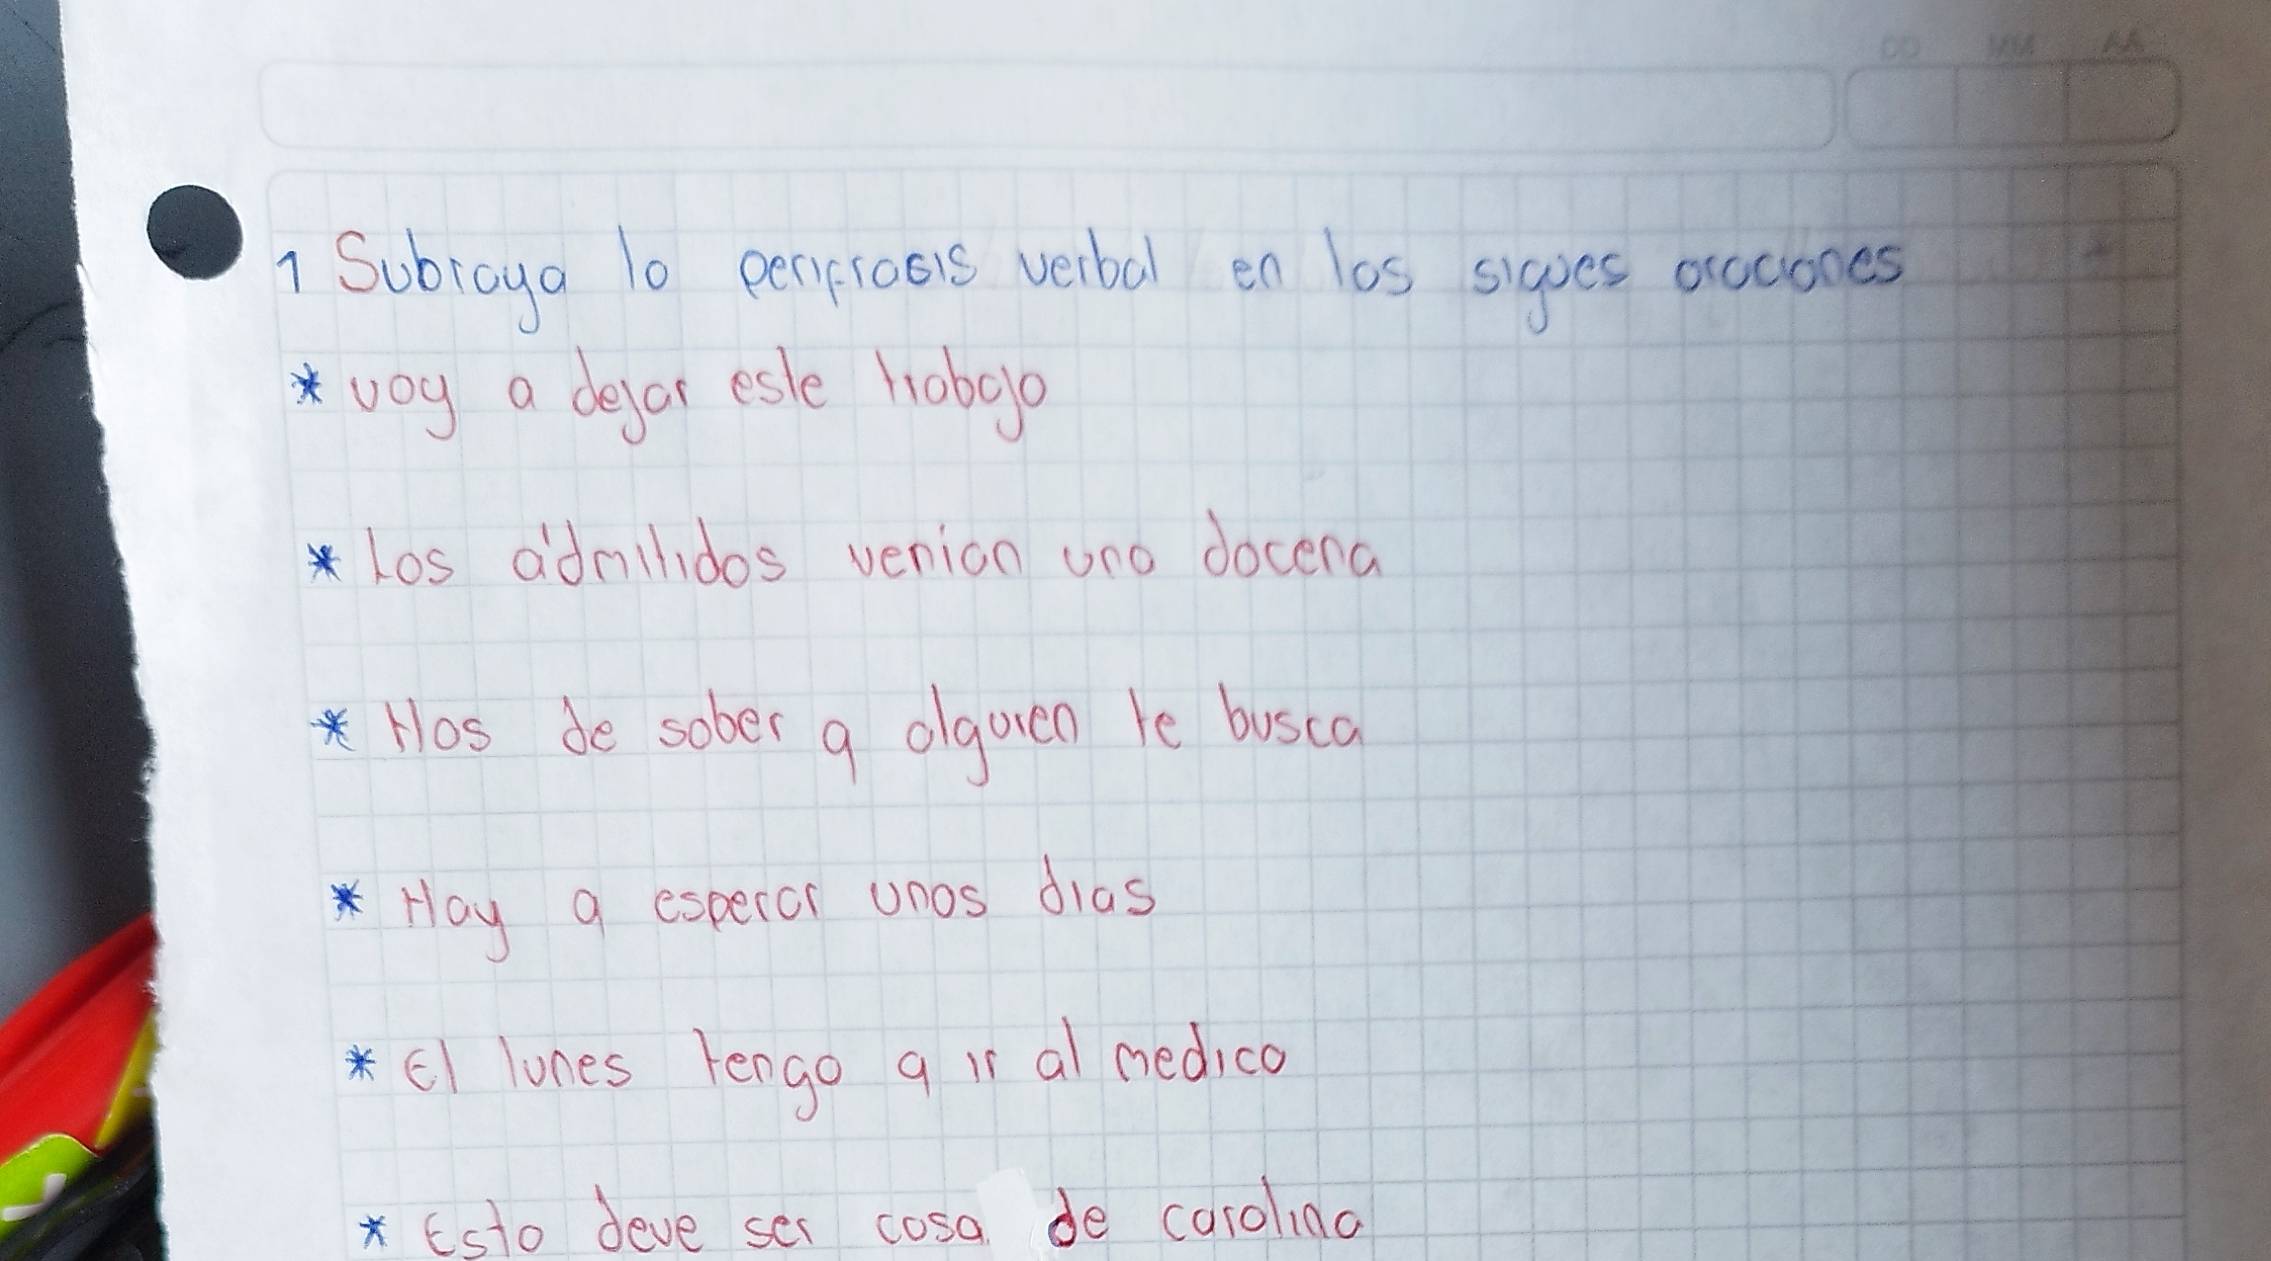 DD MM AA
1 Subraya la perifrasis verbal en las sigues oraciones
* voy a dejar este trabajo
* Los admitidos venian una docena
* Has de saber q alguien te busca
* Hay q esperar unos dias
* El lunes tengo q ir al medico
* Esto deve ser cosa de carolina